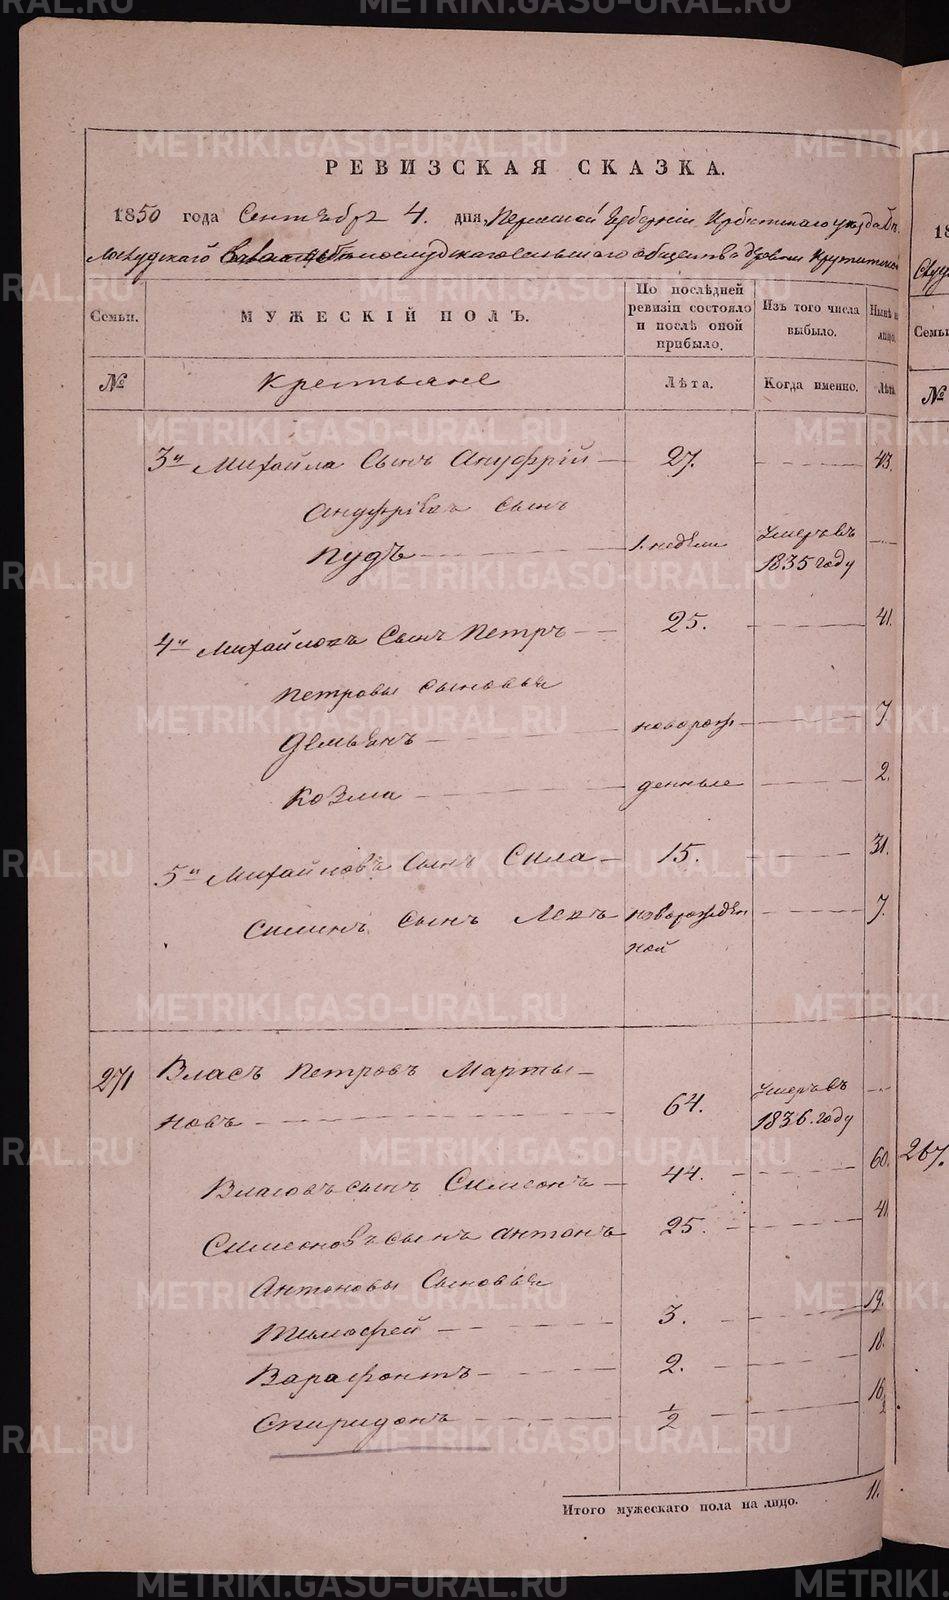 РЕВИЗСКАЯ СКАЗКА.
1850 года Сентября 4. дня, Пермской Губернии Ирбитскаго уезда
сельскаго общества деревни
Семьи. МУЖЕСКІЙ ПОЛЪ. По послѣдней ревизіи состояло и послѣ оной прибыло. Изъ того числа выбыло. Нынѣ на лицо.
№ Крестьяне Лѣта. Когда именно. Лѣта
3й Михайла Сынъ Ануфрій 27. 43.
Ануфріевъ сынъ
Пудъ 1. недели Умеръ въ 1835 году
4й Михайловъ Сынъ Петръ 25. 41.
Петровы сыновья
Демьянъ новорож 7.
Козма денные 2.
5й Михайловъ Сынъ Сила 15. 31.
Силинъ Сынъ Левъ новорожден 7.
ной
271 Власъ Петровъ Марты-
новъ 64. Умеръ въ 1836. году
Власовъ сынъ Симеонъ 44. 60.
Симеоновъ сынъ Антонъ 25. 41.
Антоновы Сыновья
Тимофей 3. 19.
Варафонтъ 2. 18.
Спиридонъ 1/2 16 1/2
Итого мужескаго пола на лицо. 11.
18
Семьи
№
267.
METRIKI.GASO-URAL.RU